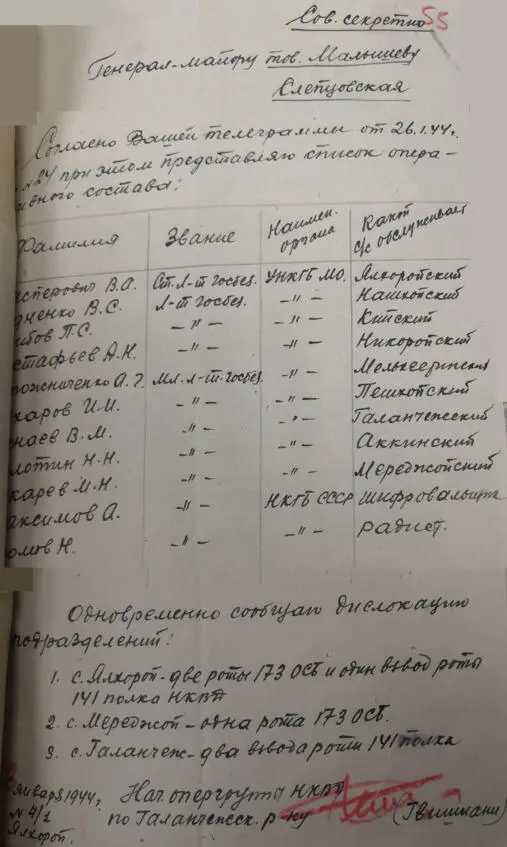 Сов. секретно 55
Генерал-майору тов. Малышеву
Слепцовская
Согласно Вашей телеграммы от 26.1.44г.
№24 при этом представляю список опера-
ивного состава:
Фамилия Звание Наимен. органа Какой с/с обслуживает
сперович В.А. Ст. Л-т госбез. УНКГБ МО. Ялхоройский
дненко В.С. Л-т госбез. —"— Нашхойский
ибов П.С. —"— —"— Кийский
стафьев А.Н. —"— —"— Никоройский
пожниченко А.Г. Мл. л-т. госбез. —"—
каров И.И. —"— —"— Пешхойский
наев В.М. —"— —"— Галанчежский
лотин Н.Н. —"— —"— Аккинский
карев М.Н. —"— —"— Мереджойский
аксимов А. —"— НКГБ СССР шифровальщик
омов Н. —"— —"— радист.
Одновременно сообщаю дислокацию
подразделений:
1. с. Ялхорой - две роты 173 ОСБ и один взвод роты
141 полка НКВД
2. с. Мереджой - одна рота 173 ОСБ.
3. с. Галанчеж - два взвода роты 141 полка
января 1944г. Нач. опергруппы НКВД
№ 4/1 по Галанчежск. р-ну (Гвишиани)
Ялхорой.